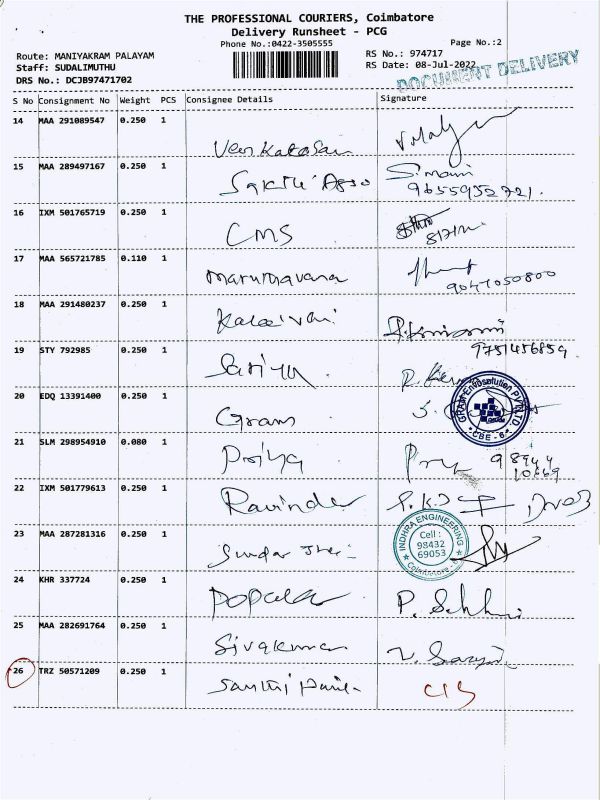 THE PROFESSIONAL COURIERS, Coimbatore
Delivery Runsheet - PCG
Phone No.:0422-3505555 Page No.:2
Route: MANIYAKRAM PALAYAM RS No.: 974717
Staff: SUDALIMUTHU RS Date: 08-Jul-2022
DRS No.: DCJB97471702 DOCUMENT DELIVERY
S No Consignment No Weight PCS Consignee Details Signature
14 MAA 291089547 0.250 1
Venkatesan
15 MAA 289497167 0.250 1 S. mani
Sakthi Asso 9655952721.
16 IXM 501765719 0.250 1
CMS
17 MAA 565721785 0.110 1
marumavana 9047050800
18 MAA 291480237 0.250 1
Kalaivani
19 STY 792985 0.250 1 9751456859.
Sariya
20 EDQ 13391400 0.250 1 GRAM Infosolution PVT LTD
Gram CBE - 6
21 SLM 298954910 0.080 1 98944
Priya 10669
22 IXM 501779613 0.250 1
Ravinder
23 MAA 287281316 0.250 1 INDHRA ENGINEERING
Cell :
98432
69053
Sundar Coimbatore - 6
24 KHR 337724 0.250 1
Popular P.
25 MAA 282691764 0.250 1
Sivakumar V.
26 TRZ 50571209 0.250 1